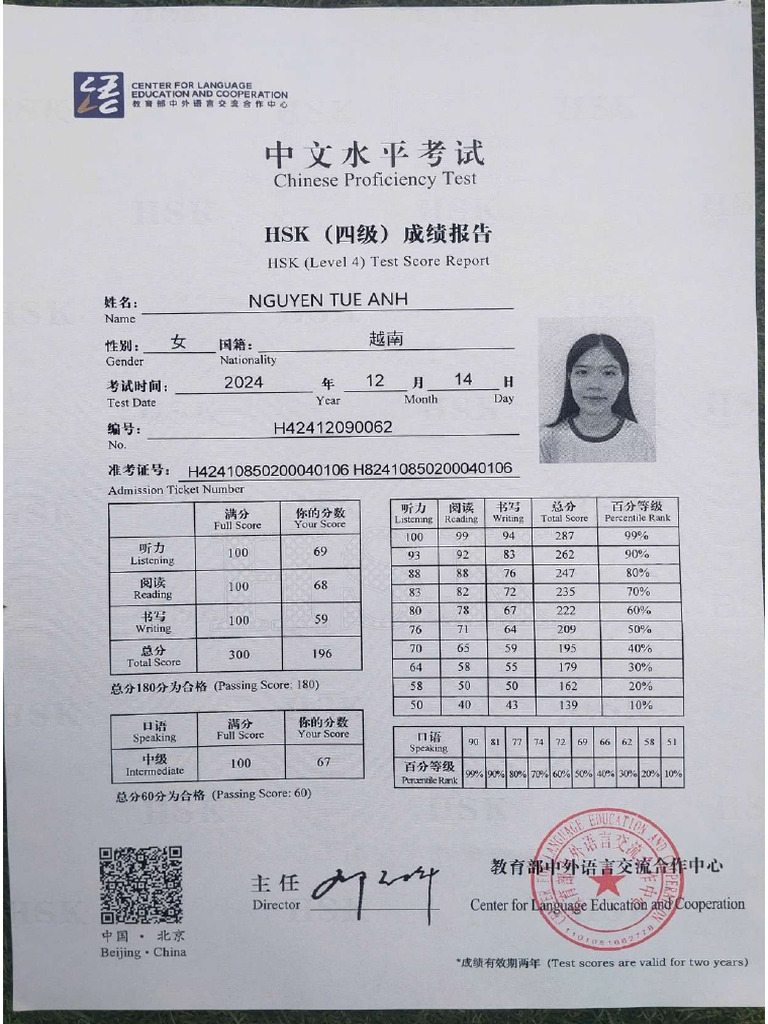 CENTER FOR LANGUAGE
EDUCATION AND COOPERATION
教育部中外语言交流合作中心
中文水平考试
Chinese Proficiency Test
HSK（四级）成绩报告
HSK (Level 4) Test Score Report
姓名： NGUYEN TUE ANH
Name
性别： 女 国籍： 越南
Gender Nationality
考试时间： 2024 年 12 月 14 日
Test Date Year Month Day
编号： H42412090062
No.
准考证号： H42410850200040106 H82410850200040106
Admission Ticket Number
满分 你的分数
Full Score Your Score
听力 100 69
Listening
阅读 100 68
Reading
书写 100 59
Writing
总分 300 196
Total Score
总分180分为合格 (Passing Score: 180)
口语 满分 你的分数
Speaking Full Score Your Score
中级 100 67
Intermediate
总分60分为合格 (Passing Score: 60)
听力 阅读 书写 总分 百分等级
Listening Reading Writing Total Score Percentile Rank
100 99 94 287 99%
93 92 83 262 90%
88 88 76 247 80%
83 82 72 235 70%
80 78 67 222 60%
76 71 64 209 50%
70 65 59 195 40%
64 58 55 179 30%
58 50 50 162 20%
50 40 43 139 10%
口语 90 81 77 74 72 69 66 62 58 51
Speaking
百分等级 99% 90% 80% 70% 60% 50% 40% 30% 20% 10%
Percentile Rank
中国・北京
Beijing・China
主任
Director
教育部中外语言交流合作中心
Center for Language Education and Cooperation
*成绩有效期两年 (Test scores are valid for two years)
HSK